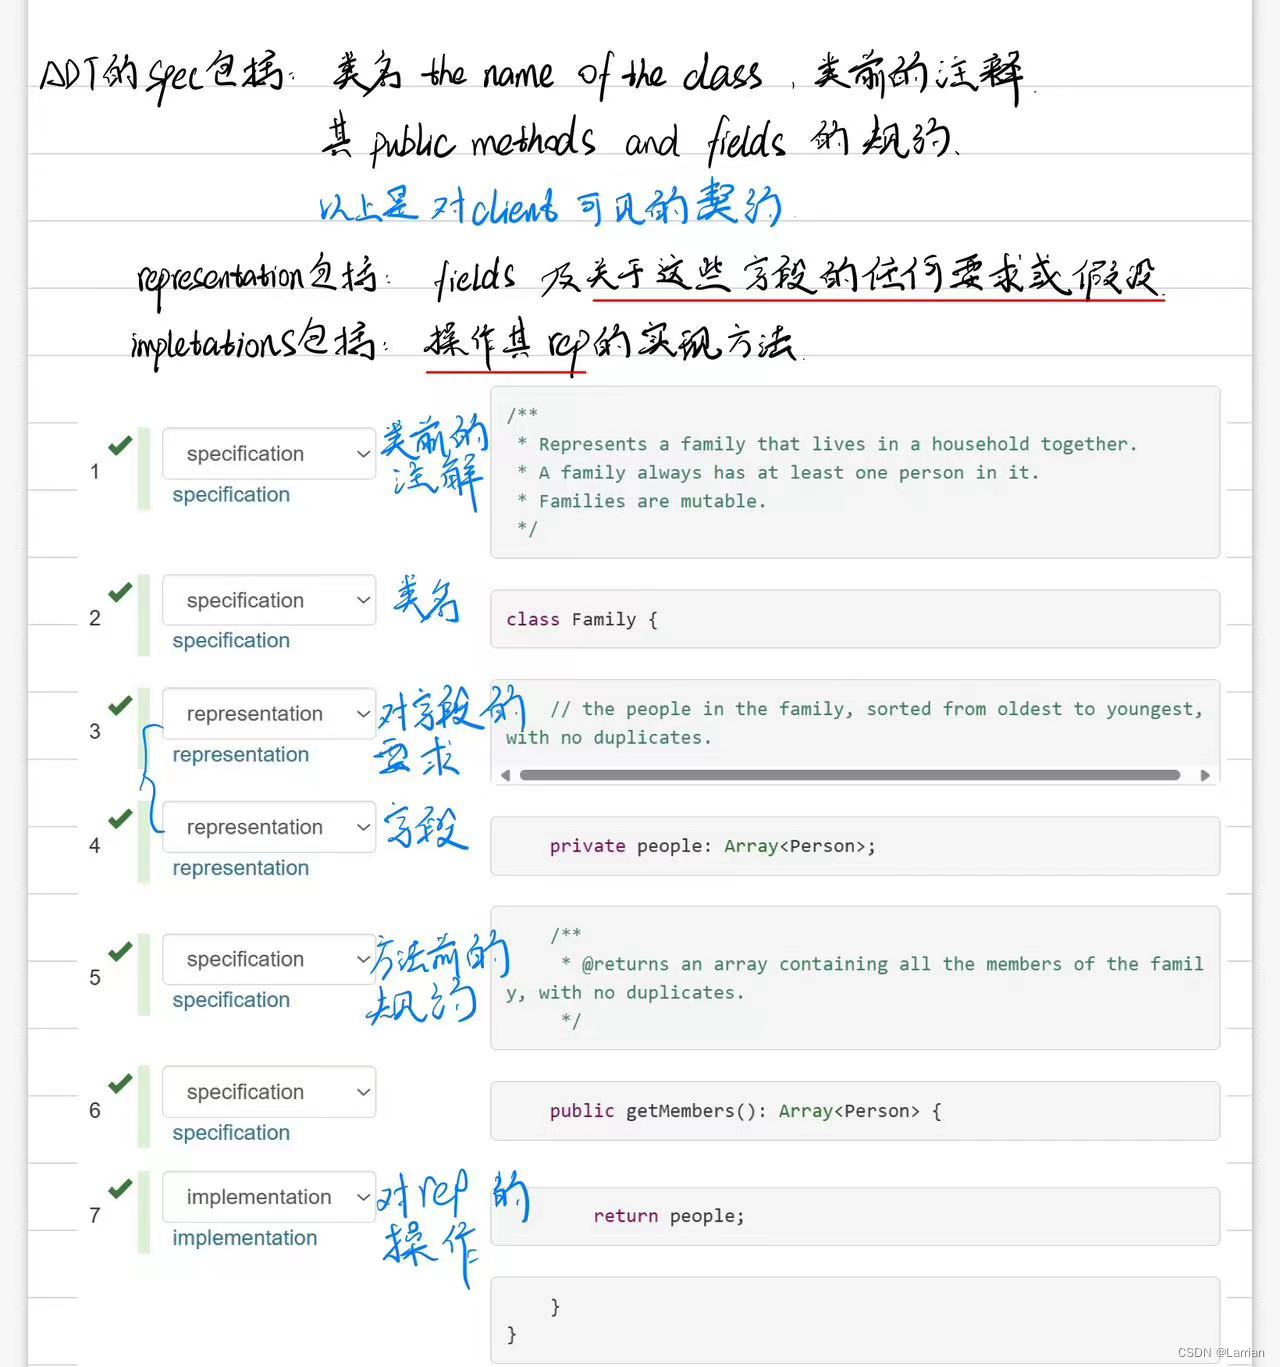 ADT的spec包括: 类名 the name of the class, 类前的注释.
其 public methods and fields 的规约.
以上是对client可见的契约.
representation包括: fields 及关于这些字段的任何要求或假设.
impletations包括: 操作其rep的实现方法.
1 specification 类前的
specification 注解
/**
* Represents a family that lives in a household together.
* A family always has at least one person in it.
* Families are mutable.
*/
2 specification 类名
specification
class Family {
3 representation 对字段的
representation 要求
// the people in the family, sorted from oldest to youngest,
with no duplicates.
4 representation 字段
representation
private people: Array<Person>;
5 specification 方法前的
specification 规约
/**
* @returns an array containing all the members of the famil
y, with no duplicates.
*/
6 specification
specification
public getMembers(): Array<Person> {
7 implementation 对rep的
implementation 操作
return people;
}
}
CSDN @Larrian